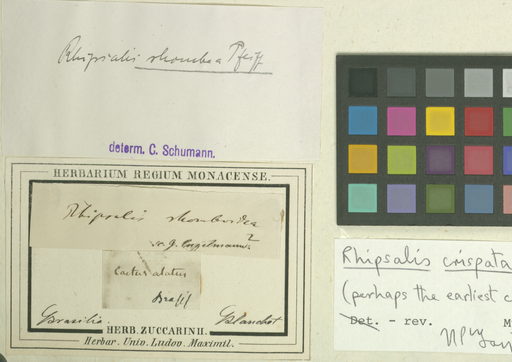 Rhipsalis rhombea Pfeiff
determ. C. Schumann.
HERBARIUM REGIUM MONACENSE.
Rhipsalis rhomboidea
v. J. Engelmann?
Cactus alatus
Brasil
Brasilia. Blanchet
HERB. ZUCCARINII.
Herbar. Univ. Ludov. Maximil.
Rhipsalis crispata
(perhaps the earliest c
Det. - rev. M